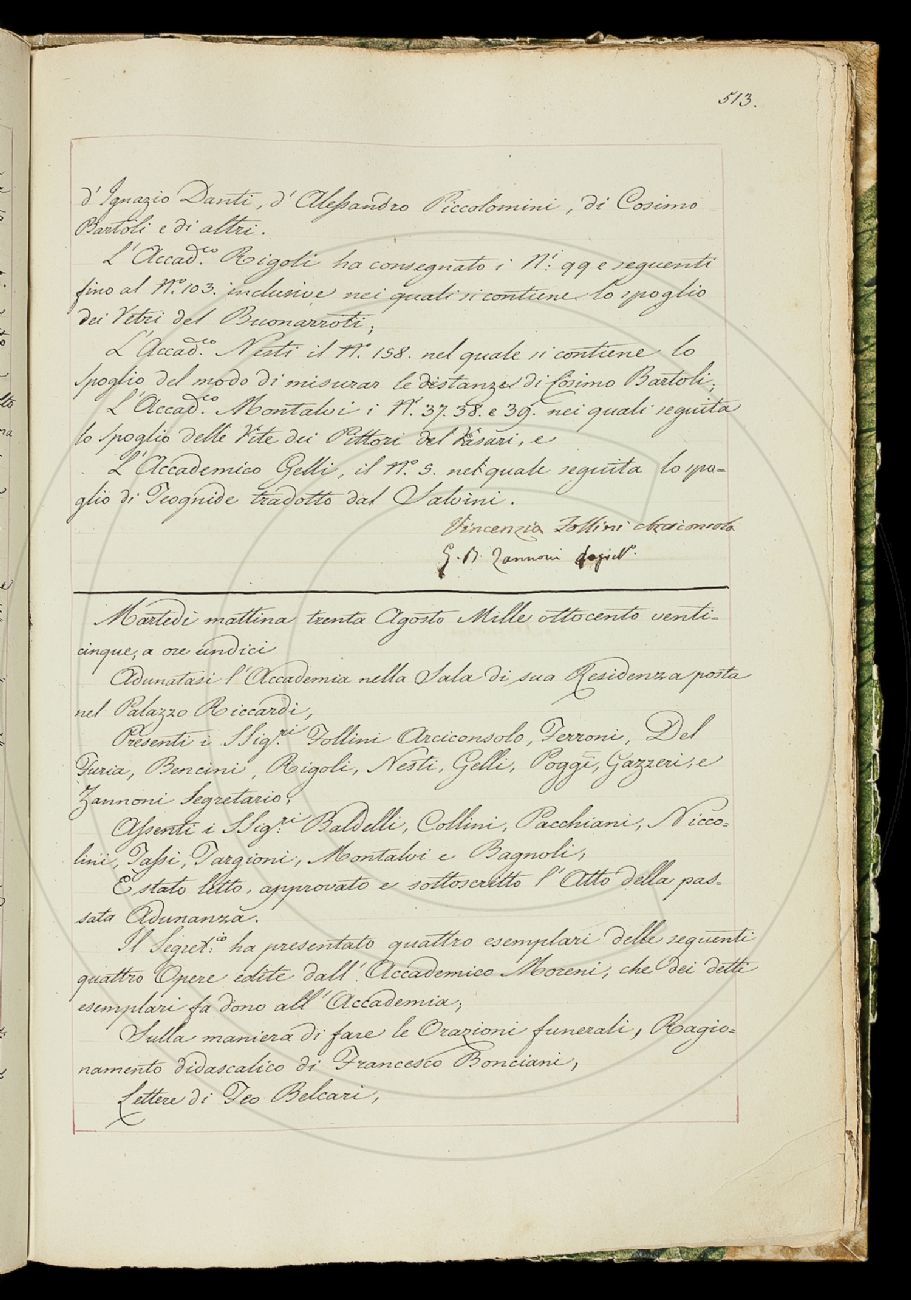 513.
d'Ignazio Danti, d'Alessandro Piccolomini, di Cosimo
Bartoli e di altri.
L'Accad.co Rigoli ha consegnato i N.i 99 e seguenti
fino al N.o 103. inclusive nei quali si contiene lo spoglio
dei Vetri del Buonarroti;
L'Accad.co Nesti il N.o 158. nel quale si contiene lo
spoglio del modo di misurar le distanze di Cosimo Bartoli;
L'Accad.co Montalvi i N.i 37. 38. e 39. nei quali seguita
lo spoglio delle Vite dei Pittori del Vasari, e
L'Accademico Gelli, il N.o 5. nel quale seguita lo spo=
glio di Teognide tradotto dal Salvini.
Vincenzio Follini Arciconsolo
G. B. Zannoni
Martedì mattina trenta Agosto Mille ottocento venti=
cinque, a ore undici
Adunatasi l'Accademia nella Sala di sua Residenza posta
nel Palazzo Riccardi,
Presenti i SSig.ri Follini Arciconsolo, Ferroni, Del
Furia, Bencini, Rigoli, Nesti, Gelli, Poggi, Gazzeri, e
Zannoni Segretario;
Assenti i SSig.ri Baldelli, Collini, Pacchiani, Nicco=
lini, Tassi, Targioni, Montalvi e Bagnoli,
È stato letto, approvato e sottoscritto l'Atto della pas=
sata Adunanza.
Il Segret.io ha presentato quattro esemplari delle seguenti
quattro Opere edite dall'Accademico Moreni, che dei detti
esemplari fa dono all'Accademia;
Sulla maniera di fare le Orazioni funerali, Ragio=
namento didascalico di Francesco Bonciani,
Lettere di Feo Belcari,